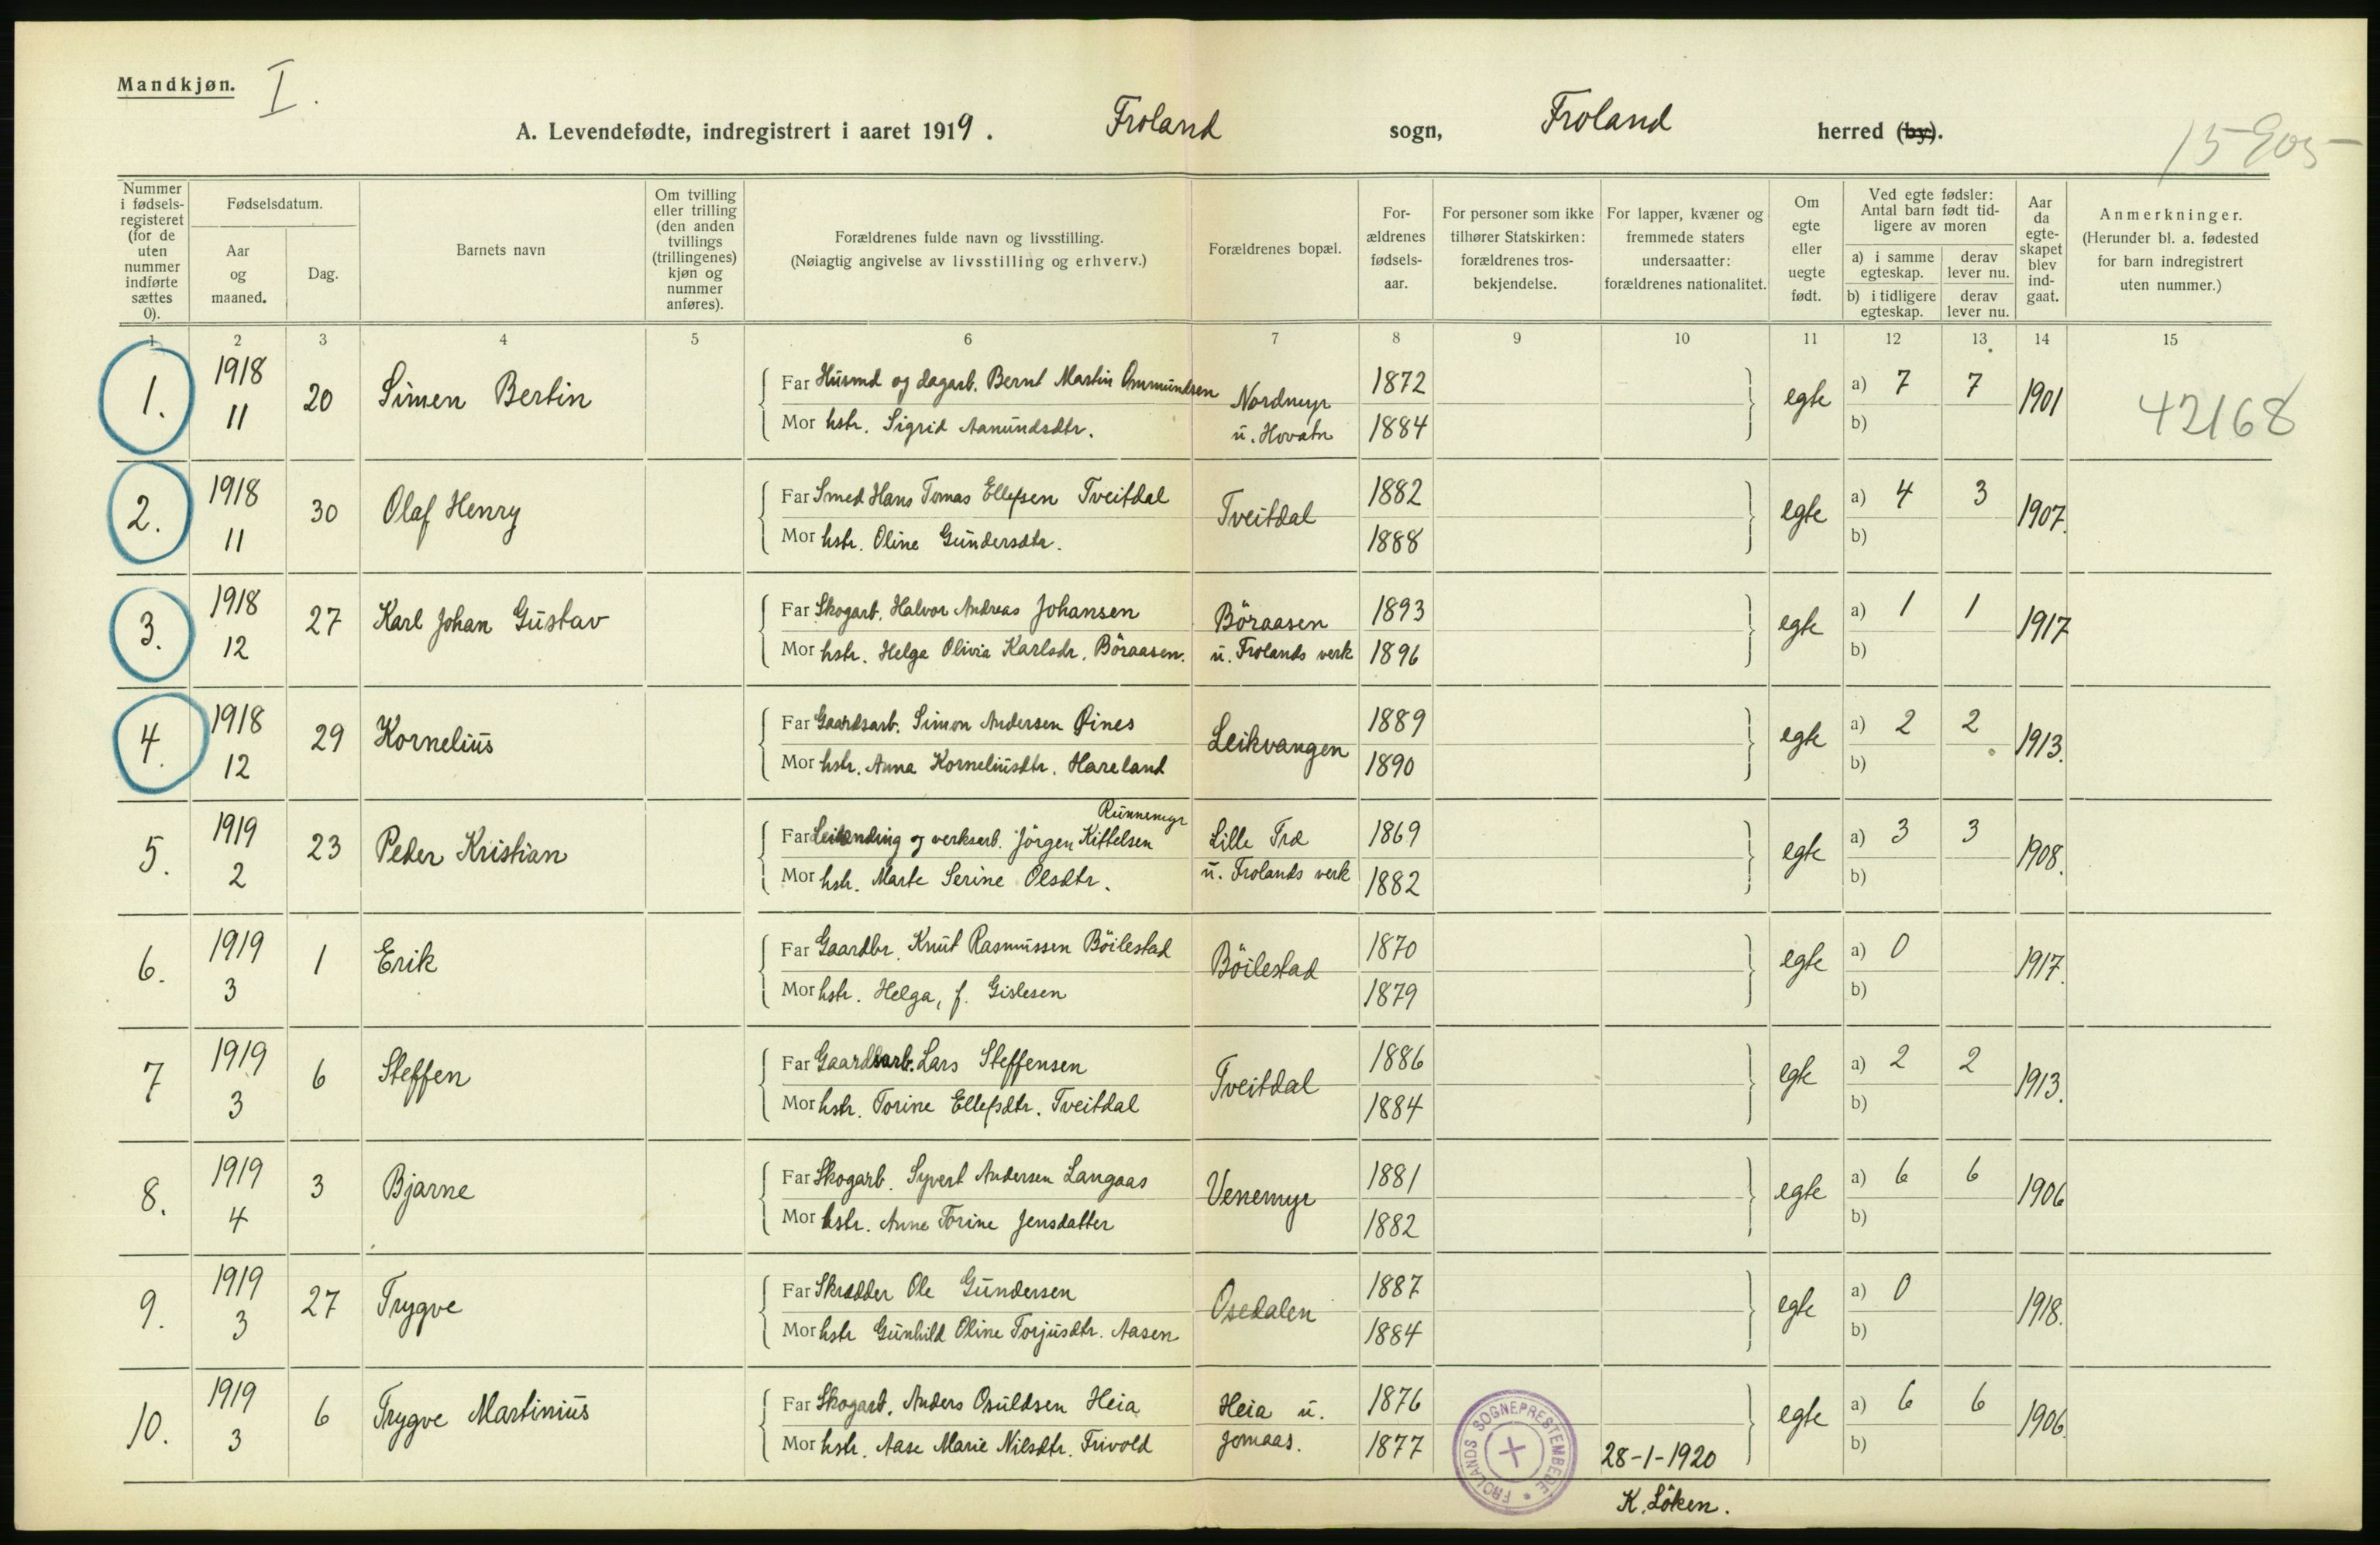 Mandkjøn. I.
A. Levendefødte, indregistrert i aaret 1919. Froland sogn, Froland herred (by).
15905
Nummer i fødselsregisteret (for de uten nummer indførte sættes 0).
Fødselsdatum.
Aar og maaned.
Dag.
Barnets navn
Om tvilling eller trilling (den anden tvillings (trillingenes) kjøn og nummer anføres).
Forældrenes fulde navn og livsstilling.
(Nøiagtig angivelse av livsstilling og erhverv.)
Forældrenes bopæl.
Forældrenes fødselsaar.
For personer som ikke tilhører Statskirken: forældrenes trosbekjendelse.
For lapper, kvæner og fremmede staters undersaatter: forældrenes nationalitet.
Om egte eller uegte født.
Ved egte fødsler: Antal barn født tidligere av moren
a) i samme egteskap. derav lever nu.
b) i tidligere egteskap. derav lever nu.
Aar da egteskapet blev indgaat.
Anmerkninger.
(Herunder bl. a. fødested for barn indregistrert uten nummer.)
1 2 3 4 5 6 7 8 9 10 11 12 13 14 15
1. 1918 11 20 Simen Bertin
Far Husmd og dagarb. Bernt Martin Ommundsen Nordmyr 1872 egte a) 7 7 1901 42168
Mor hstr. Sigrid Aanundsdtr. u. Hovatn 1884 b)
2. 1918 11 30 Olaf Henry
Far Smed Hans Tomas Ellefsen Tveitdal Tveitdal 1882 egte a) 4 3 1907.
Mor hstr. Oline Gundersdtr. 1888 b)
3. 1918 12 27 Karl Johan Gustav
Far Skogarb. Halvor Andreas Johansen Böraasen 1893 egte a) 1 1 1917
Mor hstr. Helga Olivia Karlsdr. Böraasen. u. Frolands verk 1896 b)
4. 1918 12 29 Kornelius
Far Gaardsarb. Simon Andersen Øines Leikvangen 1889 egte a) 2 2 1913.
Mor hstr. Anna Korneliusdtr. Hareland 1890 b)
5. 1919 2 23 Peder Kristian
Runnemyr
Far Leilending og verksarb. Jörgen Kittelsen Lille Træ 1869 egte a) 3 3 1908.
Mor hstr. Marte Serine Olsdtr. u. Frolands verk 1882 b)
6. 1919 3 1 Erik
Far Gaardbr. Knut Rasmussen Böilestad Böilestad 1870 egte a) 0 1917.
Mor hstr. Helga, f. Gislesen 1879 b)
7 1919 3 6 Steffen
Far Gaardsarb. Lars Steffensen Tveitdal 1886 egte a) 2 2 1913.
Mor hstr. Torine Ellefsdtr. Tveitdal 1884 b)
8. 1919 4 3 Bjarne
Far Skogarb. Syvert Andersen Langaas Venemyr 1881 egte a) 6 6 1906
Mor hstr. Anne Torine Jensdatter 1882 b)
9. 1919 3 27 Trygve
Far Skrædder Ole Gundersen Osedalen 1887 egte a) 0 1918.
Mor hstr Gunhild Oline Torjusdtr. Aasen 1884 b)
10. 1919 3 6 Trygve Martinius
Far Skogarb. Anders Osuldsen Heia Heia u. 1876 egte a) 6 6 1906.
Mor hstr. Aase Marie Nilsdtr. Trivold Jomaas. 1877 b)
FROLANDS SOGNEPRESTEMBEDE
28-1-1920
K. Löken.